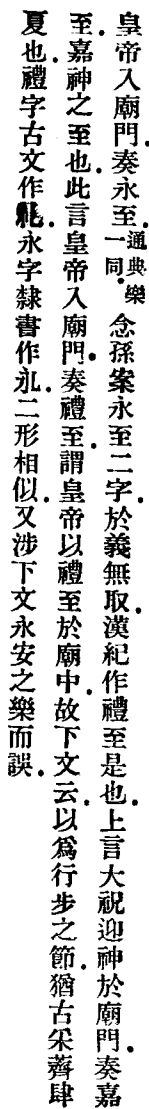 皇帝入廟門。奏永至。通典樂一同。念孫案永至二字。於義無取。漢紀作禮至是也。上言大祝迎神於廟門。奏嘉
至。嘉神之至也。此言皇帝入廟門。奏禮至。謂皇帝以禮至於廟中。故下文云。以爲行步之節。猶古采薺肆
夏也。禮字古文作。永字隸書作。二形相似。又涉下文永安之樂而誤。